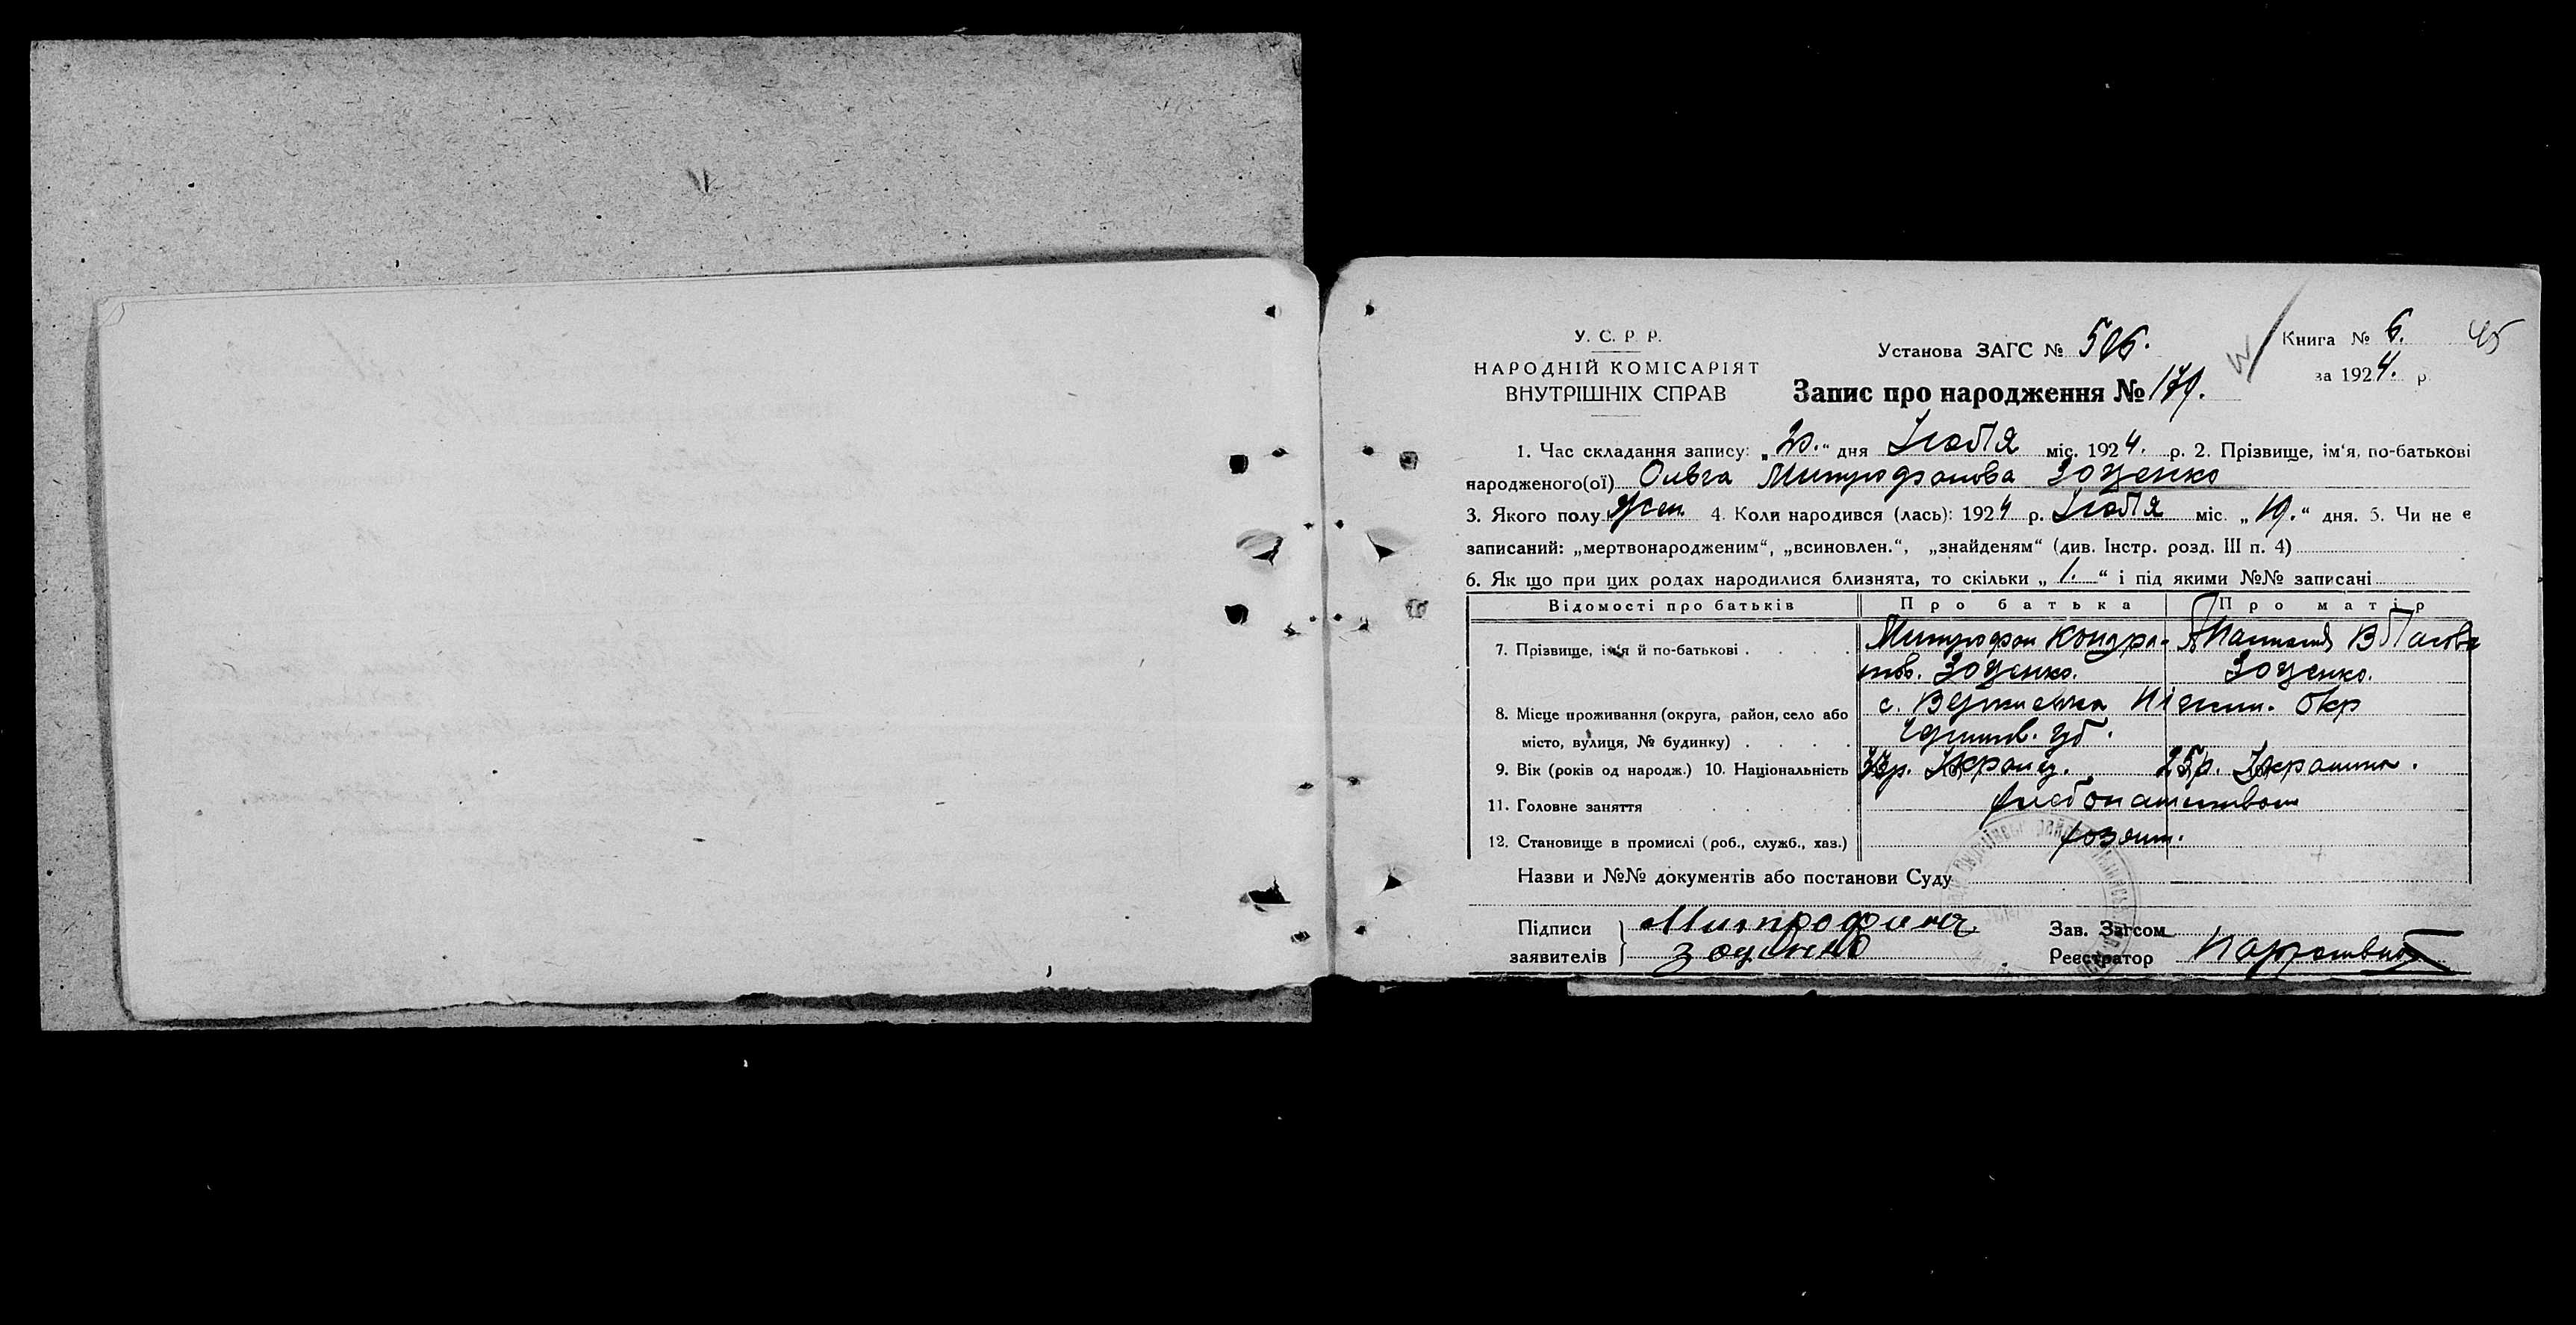 У. С. Р. Р.
НАРОДНІЙ КОМІСАРІЯТ
ВНУТРІШНІХ СПРАВ
Установа ЗАГС № 506.
Книга № 6. 45
за 1924. р.
Запис про народження № 179.
1. Час складання запису: „20.“ дня Іюля міс. 1924. р. 2. Прізвище, ім‘я, по-батькові
народженого(ої) Ольга Митрофанова Зоценко
3. Якого полу жен. 4. Коли народився (лась): 1924 р. Іюля міс. „19.“ дня. 5. Чи не є
записаний: „мертвонародженим“, „всиновлен.“, „знайденям“ (див. Інстр. розд. III п. 4)
6. Як що при цих родах народилися близнята, то скільки „1.“ і під якими №№ записані
Відомості про батьків Про батька Про матір
7. Прізвище, ім‘я й по-батькові . . . . Митрофан Кондра- Власова
тов. Зоценко. Зоценко.
8. Місце проживання (округа, район, село або с. Вертиевка Ніжин. Окр
місто, вулиця, № будинку) . . . . Черниг. губ.
9. Вік (років од народж.) 10. Національність 33р. Украінец. 25р. Украинка.
11. Головне заняття . . . . . хлебопашеством
12. Становище в промислі (роб., служб., хаз.) хозяин.
Назви и №№ документів або постанови Суду
Підписи Митрофан Зав. Загсом
заявителів Зоценко Реєстратор